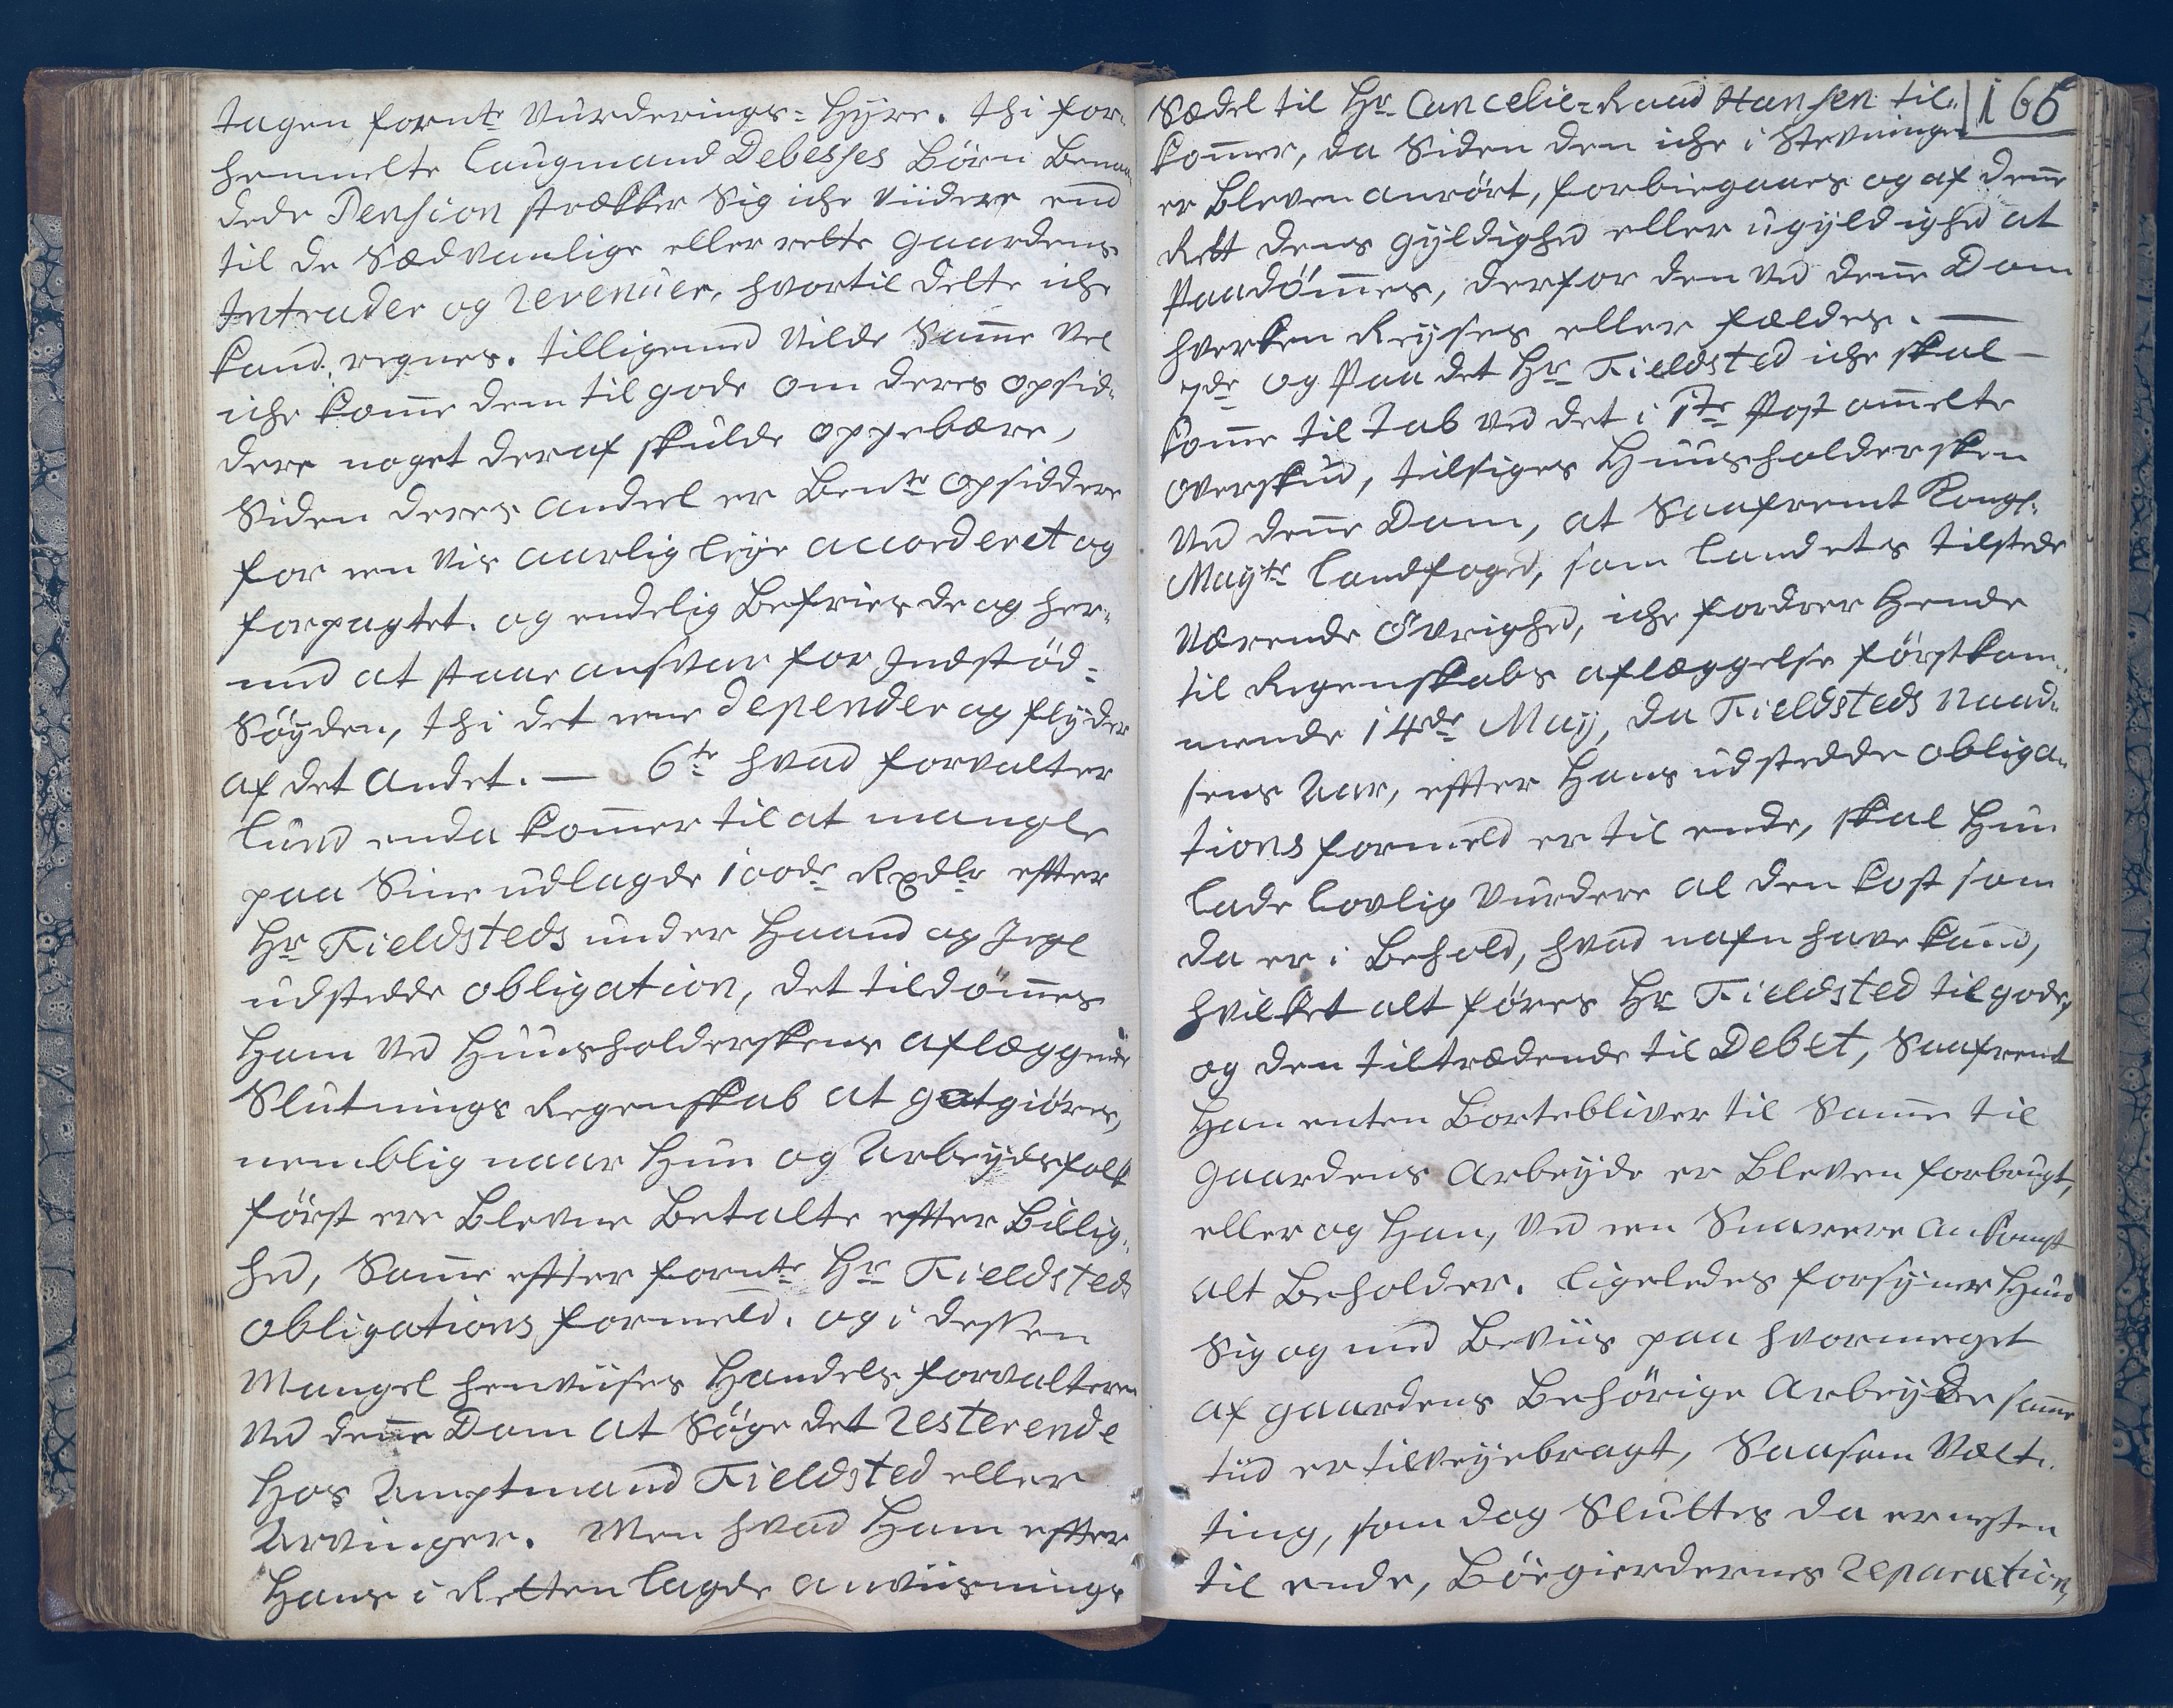 tagen fornte Vurderings-Hyre. thi for-
hemmelte Laugmand Debesses Børn Benaa-
dede Pension strækker Sig iche Viidere end
til de Sædvanlige eller rette Gaardens
Intrader og Revenüer, hvortil dette iche
kand regnes. tilligemed Vilde Sam̄e Vel
iche kom̄e dem til gode om deres opsid-
dere noget deraf skulde oppebære,
Siden deres andeel er Bente opsiddere
for een Vis aarlig leye accorderet og
forpagtet. og endelig Befries de og her-
med at staae ansvar for Indstød-
Søyden, thi det eene depender og flyder
af det andet. — 6te hvad forvalter
Lund enda kom̄er til at mangle
paa Sine udlagde 100de Rxdlr efter
Hr Fieldsteds under Haand og Segl
udstedde obligation, det tildøm̄es
Ham Ved Huusholderskens aflæggende
Slutnings Regenskab at gotgiøres,
nemblig naar Hun og Arbeydsfolk
først ere Blevne Betalte efter Billig-
hed, Sam̄e efter fornte Hr Fieldsteds
obligations formeld. og i dessen
Mangel henviises Handels forvalteren
Ved den̄e Dom at Søge det resterende
Hos Amptmand Fieldsted eller
Arvinger. Men hvad Ham efter
Hans i Retten lagde anviisnings
Sædel til Hr Cancelie-Raad Hansen til-
166
kom̄er, da Siden den iche i Stevningen
er Bleven anrørt, forbiegaaes og af den̄e
Rett dens gyldighed eller ugyldighed at
Paadøm̄es, derfor den Ved den̄e Dom
hverken Reyses eller fældes. —
7de og Paa det Hr Fieldsted iche skal —
kom̄e til Tab Ved det i 1te Post om̄elte
overskud, tilsiges Huusholdersken
Ved den̄e Dom, at Saafremt Kongl.
Mayts Landfoged, som Landets tilstede
Værende Øvrighed, iche fordrer Hende
til Regenskabs aflæggelse førstkom-
mende 14de May, da Fieldsteds Naad-
sens Aar, efter Hans udstedde obliga-
tions formeld er til ende, skal Hun
lade lovlig Vurdere al den kost som
da er i Behold, hvad nafn have kand,
hvilket alt føres Hr Fieldsted til gode,
og den tiltrædende til Debet, Saafremt
Han enten Bortebliver til Sam̄e til
Gaardens Arbeyde er Bleven forbrugt,
eller og Han, Ved een Snarere ankomst
alt Beholder. Ligeledes forsyner Hun
Sig og med Beviis paa hvormeget
af gaardens Behørige Arbeyde sam̄e
tiid er tilveyebragt, Saasom Velt-
ting, som dog Sluttes da er nesten
til ende, Bøegierdernes Reparation,